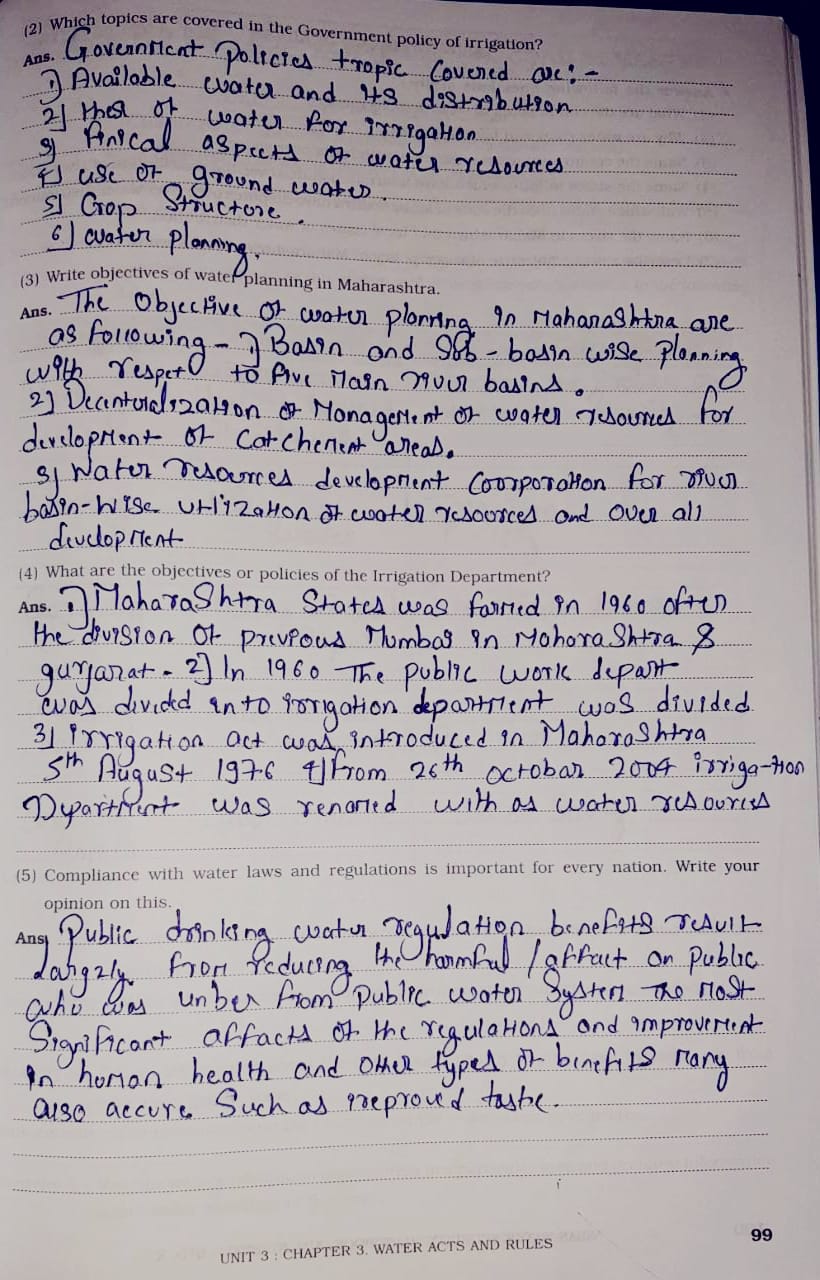 (2) Which topics are covered in the Government policy of irrigation?
Ans. Government Policies tropic Covered are: -
1) Available water and its distribution
2) of water for irrigation
3) aspects of water resources
4) use of ground water.
5) Crop Structure.
6) water planning.
(3) Write objectives of water planning in Maharashtra.
Ans. The Objective of water planning in Maharashtra are
as following - 1) Basin and Sub - basin wise planning
with respet to five main river basins.
2) Decenturalization of Management of water resources for
development of Catchement areas.
3) Water resources development Coorporation for river
basin-wise utilization of water resources and over all
development
(4) What are the objectives or policies of the Irrigation Department?
Ans. 1) Maharashtra States was formed in 1960 after
the division of previous Mumbai in Mohorashtra &
gurjarat - 2) In 1960 The public work depart
was divided into irrigation department was divided
3) irrigation act was introduced in Mahorashtra
5th August 1976 4) from 26th octobar 2004 irriga-tion
Department was renamed with as water resources
(5) Compliance with water laws and regulations is important for every nation. Write your
opinion on this.
Ans Public drinking water regulation benefits result
largzly from reducing the harmful / affact on public
who was unber from public water System The most
Significant affacts of the regulations and improvement
in human health and other types of benefits many
also accure Such as improved taste.
UNIT 3 : CHAPTER 3. WATER ACTS AND RULES
99